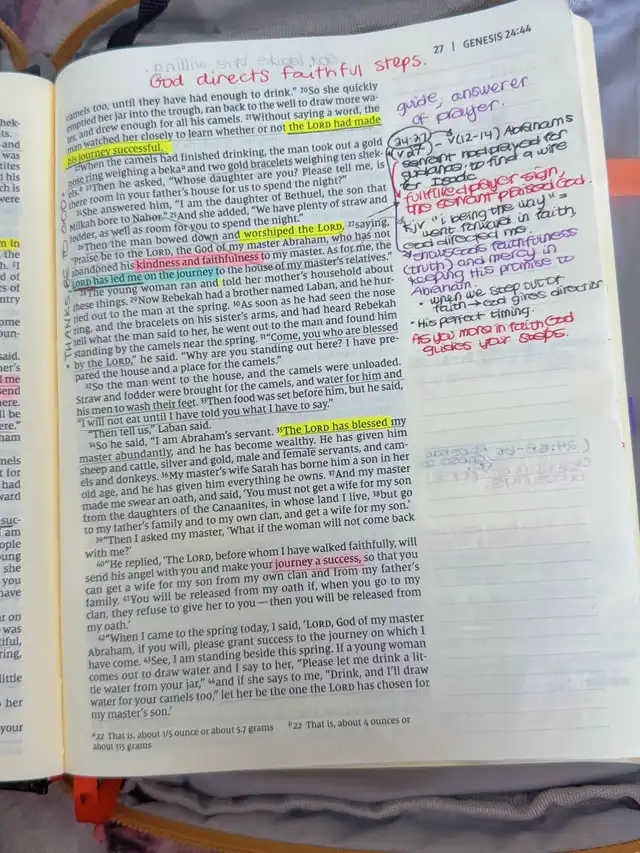 27 | GENESIS 24:44
God directs faithful steps.
camels too, until they have had enough to drink.” ²⁰So she quickly
emptied her jar into the trough, ran back to the well to draw more wa-
ter, and drew enough for all his camels. ²¹Without saying a word, the
man watched her closely to learn whether or not the LORD had made
his journey successful.
²²When the camels had finished drinking, the man took out a gold
nose ring weighing a beka ᵃ and two gold bracelets weighing ten shek-
els. ᵇ ²³Then he asked, “Whose daughter are you? Please tell me, is
there room in your father’s house for us to spend the night?”
²⁴She answered him, “I am the daughter of Bethuel, the son that
Milkah bore to Nahor.” ²⁵And she added, “We have plenty of straw and
fodder, as well as room for you to spend the night.”
²⁶Then the man bowed down and worshiped the LORD, ²⁷saying,
“Praise be to the LORD, the God of my master Abraham, who has not
abandoned his kindness and faithfulness to my master. As for me, the
LORD has led me on the journey to the house of my master’s relatives.”
²⁸The young woman ran and told her mother’s household about
these things. ²⁹Now Rebekah had a brother named Laban, and he hur-
ried out to the man at the spring. ³⁰As soon as he had seen the nose
ring, and the bracelets on his sister’s arms, and had heard Rebekah
tell what the man said to her, he went out to the man and found him
standing by the camels near the spring. ³¹“Come, you who are blessed
by the LORD,” he said. “Why are you standing out here? I have pre-
pared the house and a place for the camels.”
³²So the man went to the house, and the camels were unloaded.
Straw and fodder were brought for the camels, and water for him and
his men to wash their feet. ³³Then food was set before him, but he said,
“I will not eat until I have told you what I have to say.”
“Then tell us,” Laban said.
³⁴So he said, “I am Abraham’s servant. ³⁵The LORD has blessed my
master abundantly, and he has become wealthy. He has given him
sheep and cattle, silver and gold, male and female servants, and cam-
els and donkeys. ³⁶My master’s wife Sarah has borne him a son in her
old age, and he has given him everything he owns. ³⁷And my master
made me swear an oath, and said, ‘You must not get a wife for my son
from the daughters of the Canaanites, in whose land I live, ³⁸but go
to my father’s family and to my own clan, and get a wife for my son.’
³⁹“Then I asked my master, ‘What if the woman will not come back
with me?’
⁴⁰“He replied, ‘The LORD, before whom I have walked faithfully, will
send his angel with you and make your journey a success, so that you
can get a wife for my son from my own clan and from my father’s
family. ⁴¹You will be released from my oath if, when you go to my
clan, they refuse to give her to you—then you will be released from
my oath.’
⁴²“When I came to the spring today, I said, ‘LORD, God of my master
Abraham, if you will, please grant success to the journey on which I
have come. ⁴³See, I am standing beside this spring. If a young woman
comes out to draw water and I say to her, “Please let me drink a lit-
tle water from your jar,” ⁴⁴and if she says to me, “Drink, and I’ll draw
water for your camels too,” let her be the one the LORD has chosen for
my master’s son.’
ᵃ 22 That is, about 1/5 ounce or about 5.7 grams ᵇ 22 That is, about 4 ounces or
about 115 grams
* THANKS BE TO GOD! *
guide, answerer
of prayer.
24:27
(v27) - v(12-14) Abraham's
servant had prayed for
guidance, to find a wife
for Isaac.
fulfilled prayer sign,
the servant praised God.
KJV "i being the way" =
i went forward in faith,
God directed me.
showcases faithfulness
(truth) and mercy in
keeping His promise to
Abraham.
• when we step out in
faith → God gives direction
• His perfect timing.
As you move in faith God
guides your steps.